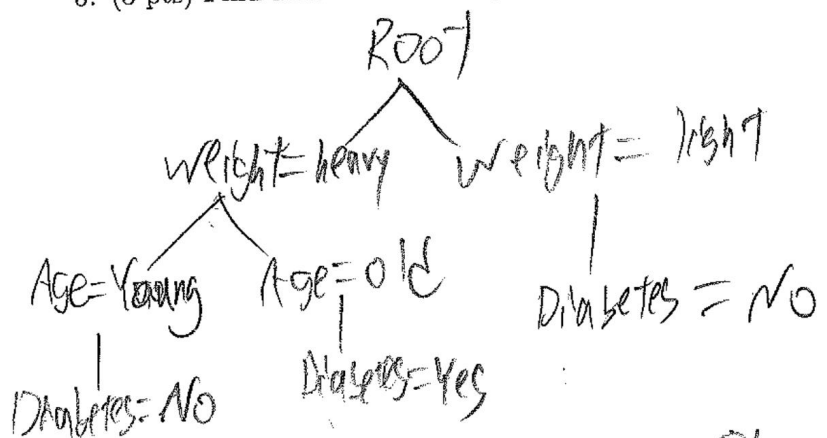 Root
Weight=heavy Weight= light
Age=Young Age=old
Diabetes = No
Diabetes=Yes
Diabetes=No